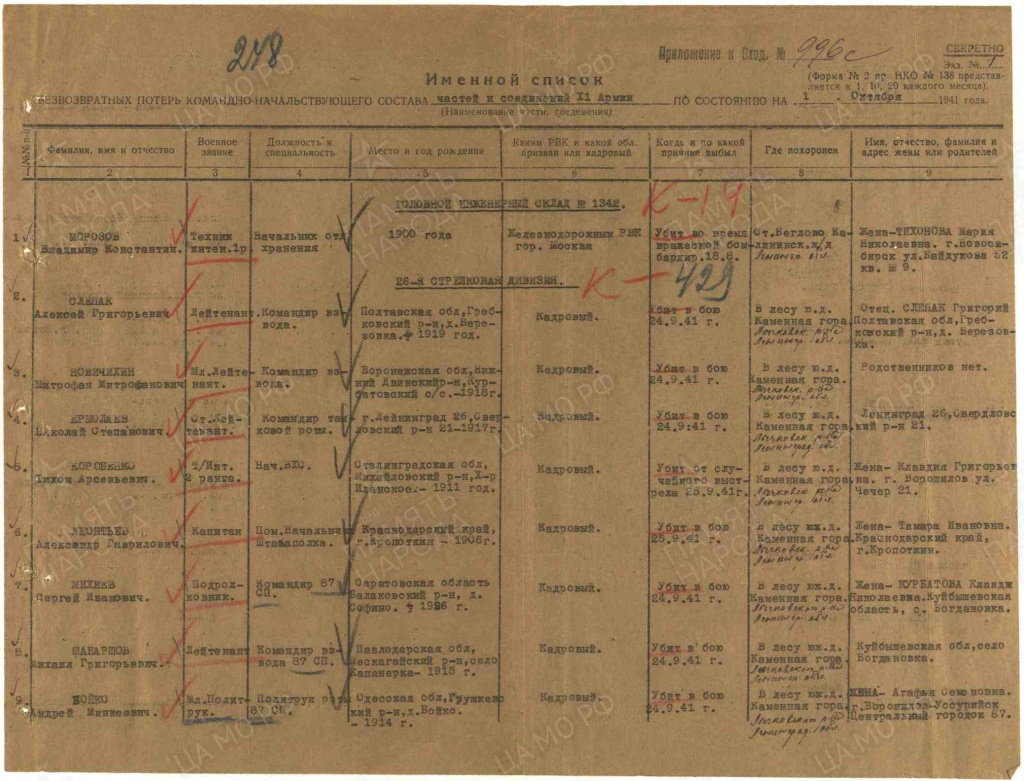 248
Приложение к Сход. № 996с
СЕКРЕТНО
Экз. № 1
(Форма № 2 пр. НКО № 138 представляется к 1, 10, 20 каждого месяца).
Именной список
БЕЗВОЗВРАТНЫХ ПОТЕРЬ КОМАНДНО-НАЧАЛЬСТВУЮЩЕГО СОСТАВА частей и соединений X1 Армии ПО СОСТОЯНИЮ НА 1 Октября 1941 года.
(Наименование части, соединения)
№№ п-п Фамилия, имя и отчество Военное звание Должность и специальность Место и год рождения Каким РВК и какой обл. призван или кадровый Когда и по какой причине выбыл Где похоронен Имя, отчество, фамилия и адрес жены или родителей
1 2 3 4 5 6 7 8 9
ГОЛОВНОЙ ИНЖЕНЕРНЫЙ СКЛАД № 1342. К-17
1 МОРОЗОВ Владимир Константин. Техник интен.1р Начальник отд хранения 1900 года Железнодорожный РВК гор. Москва Убит во время вражеской бомбардир.18.8. Ст.Веглово Калининск.ж/д Ленингр. обл. Жена-ТИХОНОВА Мария Николаевна. г.Новосибирск ул.Байдукова 52 кв. № 9.
26-Я СТРЕЛКОВАЯ ДИВИЗИЯ. К-429
2. СЛЕБАК Алексей Григорьевич Лейтенант Командир взвода. Полтавская обл,Гребковский р-н,д.Березовка. 1919 год. Кадровый. Убит в бою 24.9.41 г. В лесу ю.д. Каменная гора. Лычковск. р-на Ленингр. обл. Отец. СЛЕБАК Григорий Полтавская обл,Гребковский р-н,д. Березовка.
3. НОВИЧИХИН Митрофан Митрофанович Мл.Лейтенант. Командир взвода. Воронежская обл,Нижний Двинскийр-н,Курбатовский с/с.-1918г. Кадровый. Убит в бою 24.9.41 г. В лесу ю.д. Каменная гора. Лычковск. р-на Ленингр. обл. Родственников нет.
4. ЕРМОЛАЕВ Николай Степанович. Ст.Лейтенант. Командир танковой роты. г.Лейнинград 26,Свердловский р-н 21-1917г. Кадровый. Убит в бою 24.9.41 г. В лесу ю.д. Каменная гора. Лычковск. р-на Ленинград. обл. Ленинград 26,Свердловский р-н 21.
5. КОРОБЕНКО Тихон Арсеньевич. Т/Инт. 2 ранга. Нач.ВХС. Сталинградская обл, Михайловский р-н,Х-р Иланское.- 1911 год. Кадровый. Убит от случайного выстрела 25.9.41г. В лесу ю.д. Каменная гора, Лычковск. р-на Ленингр. обл. Жена- Клавдия Григорьевна. г. Ворошилов ул. Чечер 21.
6 ЛЕОНТЬЕВ Александр Гаврилович. Капитан Пом.Начальника Штабаполка. Краснодарский край, г.Кропоткин - 1906г. Кадровый. Убит в бою 25.9.41 г. В лесу юж.д. Каменная гора. Лычковск. р-на Ленингр. обл. Жена- Тамара Ивановна. Краснодарский край, г.Кропоткин.
7. МИХЕЕВ Сергей Иванович. Подполковник. Командир 87 СП. Саратовская область Балаковский р-н, д. Софино. 1926 г. Кадровый. Убит в бою 24.9.41 г. В лесу юж.д. Каменная гора. Лычковского р-на Ленингр. обл. Жена- КУРБАТОВА Клавди Николаевна.Куйбышевская область, с. Богдановка.
8. ШАБАРШОВ Михаил Григорьевич. Лейтенант Командир взвода 87 СП. Павлодарская обл, Мескагайский р-н,село Капанерка- 1915 г. Кадровый. Убит в бою 24.9.41 г. В лесу ю.д. Каменная гора. Лычковского р-на Ленингр. обл. Куйбышевская обл,село Богдановка.
9 БОЙКО Андрей Матвеевич. Мл.Политрук. Политрук роты 87 СП. Одесская обл,Грушкевский р-н,д.Бойко. - 1914 г. Кадровый. Убит в бою 24.9.41 г. В лесу ю.д. Каменная гора. Лычковского р-на Ленинград. обл. ЖЕНА- Агафья Семеновна. г.Ворошилов-Уссурийск Центральный городок 87.